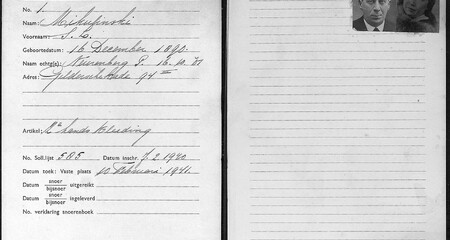 No. 1.
Naam: Mikupinski
Voornaam: S. C.
Geboortedatum: 16 December 1890.
Naam echtg(e): Nuremberg S. 16.10.87
Adres: Geldersche Kade 94 III
Artikel: 2e hands kleeding
No. Soll.lijst 585 Datum inschr. 7.2.1940
Datum toek: Vaste plaats 10 Februari 1941.
Datum snoer bijsnoer uitgereikt
Datum snoer bijsnoer ingeleverd
No. verklaring snoerenboek